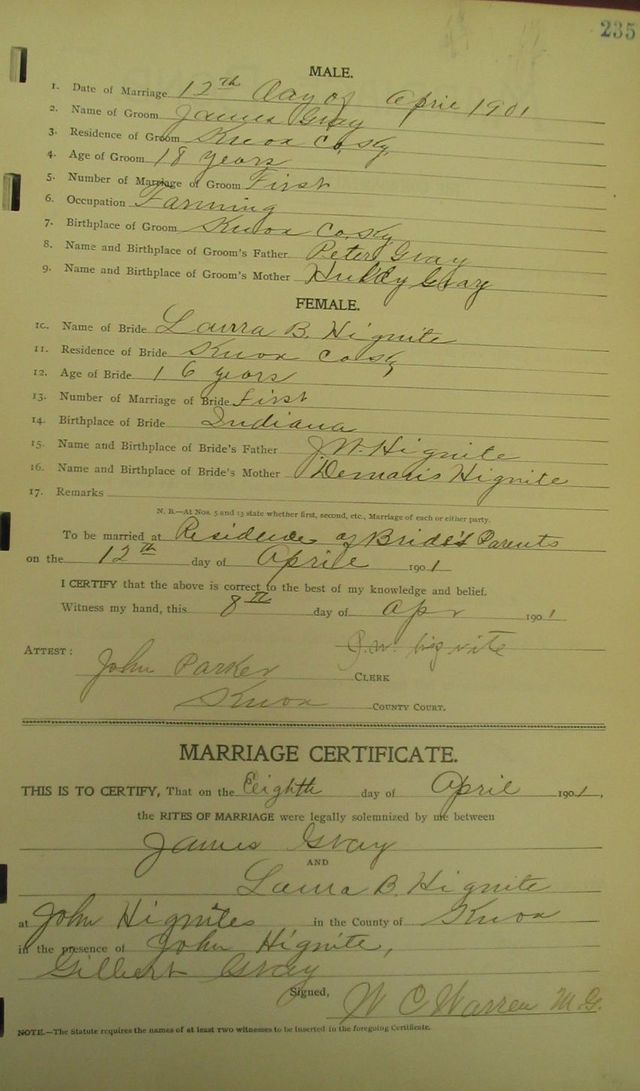 235
MALE.
1. Date of Marriage 12th day of Aprie 1901
2. Name of Groom James Gray
3. Residence of Groom Knox Co, Ky,
4. Age of Groom 18 years
5. Number of Marriage of Groom First
6. Occupation Farming
7. Birthplace of Groom Knox Co, Ky
8. Name and Birthplace of Groom's Father Peter Gray
9. Name and Birthplace of Groom's Mother Huldy Gray
FEMALE.
10. Name of Bride Laura B. Hignite
11. Residence of Bride Knox Co, Ky
12. Age of Bride 16 years
13. Number of Marriage of Bride First
14. Birthplace of Bride Indiana
15. Name and Birthplace of Bride's Father J.W. Hignite
16. Name and Birthplace of Bride's Mother Demaris Hignite
17. Remarks
N. B.—At Nos. 5 and 13 state whether first, second, etc., Marriage of each or either party.
To be married at Residence of Bride's Parents
on the 12th day of Aprile 1901
I CERTIFY that the above is correct to the best of my knowledge and belief.
Witness my hand, this 8th day of Apr 1901
J.W. hignite
ATTEST:
John Parker CLERK
Knox COUNTY COURT.
MARRIAGE CERTIFICATE.
THIS IS TO CERTIFY, That on the Eeighth day of April 1901,
the RITES OF MARRIAGE were legally solemnized by me between
James Gray
AND
Laura B. Hignite
at John Hignites in the County of Knox
in the presence of John Hignite,
Gilbert Gray
Signed, W C Warren M.G.
NOTE.—The Statute requires the names of at least two witnesses to be inserted in the foregoing Certificate.